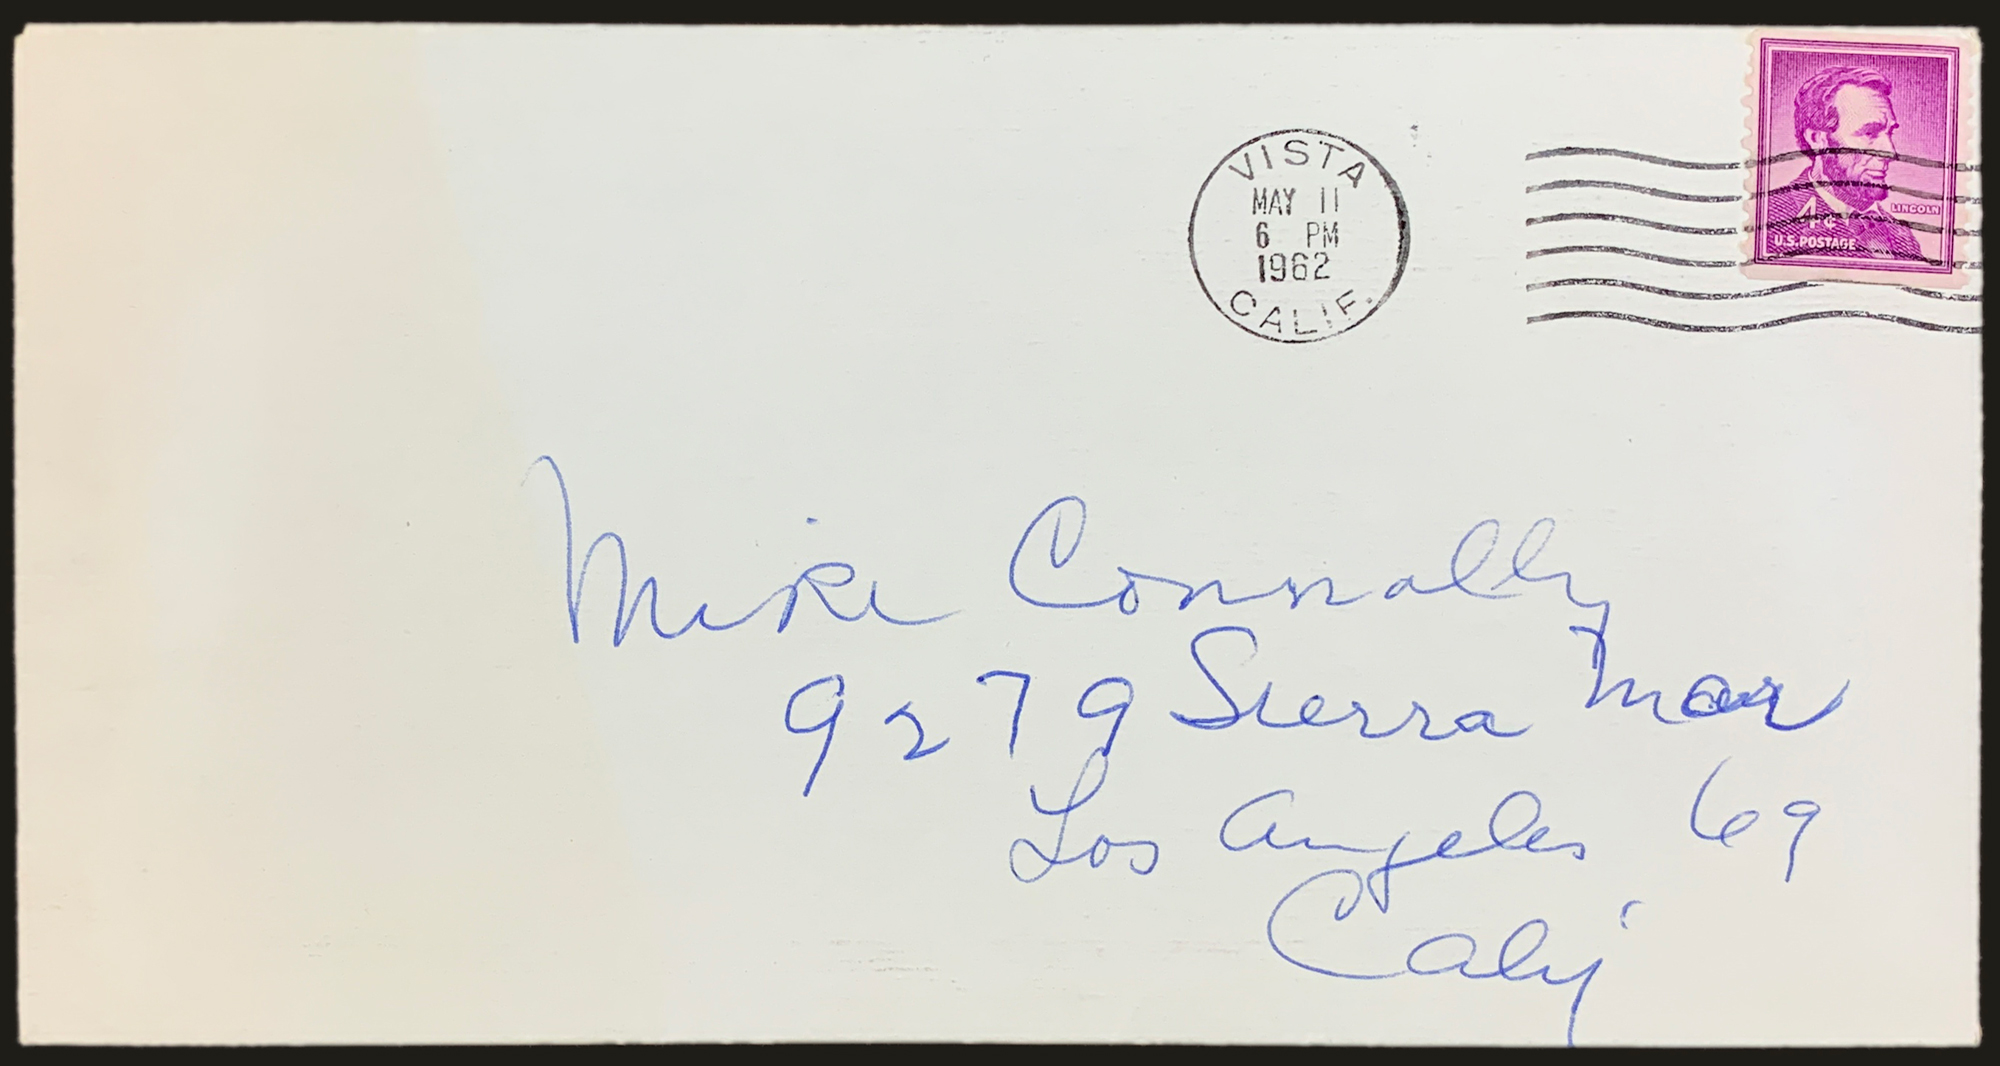 VISTA
MAY 11
6 PM
1962
CALIF.
LINCOLN
4¢
U.S. POSTAGE
Mike Connolly
9279 Sierra Mar
Los Angeles 69
Calif